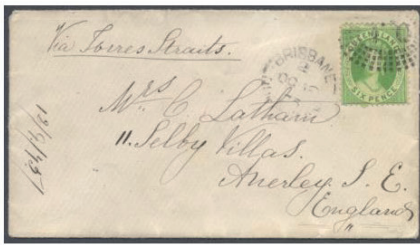 Via Torres Straits.
BRISBANE
SIX PENCE
Mrs C. Latham
11. Selby Villas.
Anerley S. E.
England